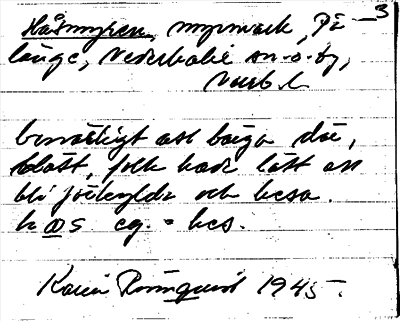 3
Håsmyren, myrmark, på
länge, Nederkalix sn. o. by,
Norrb. l.
besvärligt att bärga där,
blött, folk hade lätt att
bli förkylda och hesa.
hås eg. = hes.
Karin Rönnquist 1945.